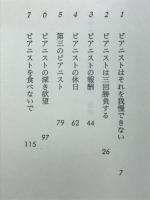 1 ピアニストはそれを我慢できない 7
2 ピアニストは三回勝負する 26
3 ピアニストの報酬 44
4 ピアニストの休日 62
5 第三のピアニスト 79
6 ピアニストの深き欲望 97
7 ピアニストを食べないで 115